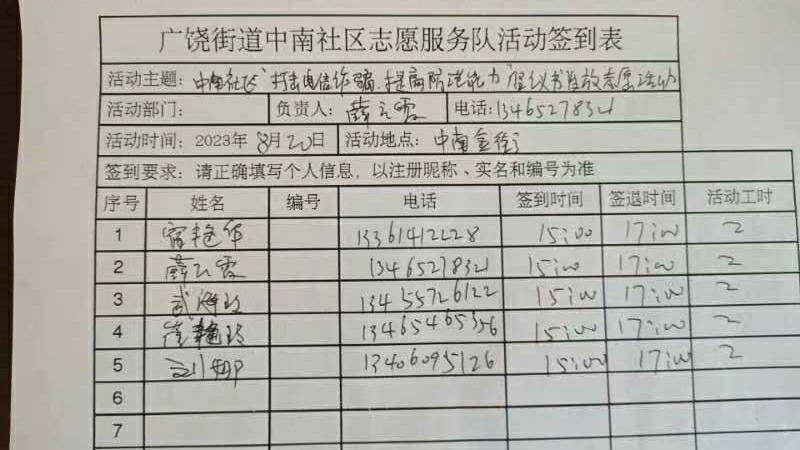 广饶街道中南社区志愿服务队活动签到表
活动主题: 中南社区"打击电信诈骗、提高防范能力"倡议书发放志愿活动
活动部门: 负责人: 薛云霞 电话: 13465278321
活动时间: 2023年 8月20日 活动地点: 中南金街
签到要求: 请正确填写个人信息，以注册昵称、实名和编号为准
序号 姓名 编号 电话 签到时间 签退时间 活动工时
1 艳华 13361412228 15:00 17:00 2
2 薛云霞 13465278321 15:00 17:00 2
3 武 13455726122 15:00 17:00 2
4 崔艳玲 13465465356 15:00 17:00 2
5 刘娜 13406095126 15:00 17:00 2
6
7